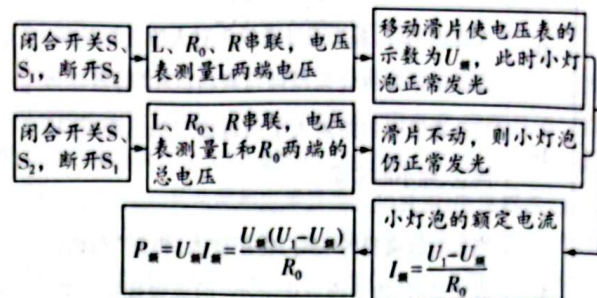 闭合开关S、
S₁，断开S₂
L、R₀、R串联，电压
表测量L两端电压
移动滑片使电压表的
示数为U额，此时小灯
泡正常发光
闭合开关S、
S₂，断开S₁
L、R₀、R串联，电压
表测量L和R₀两端的
总电压
滑片不动，则小灯泡
仍正常发光
P额=U额I额=U额(U₁-U额)/R₀
小灯泡的额定电流
I额=(U₁-U额)/R₀